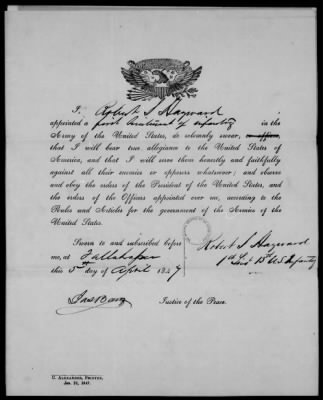 I, Robert S Hayward
appointed a first lieutenant of infantry in the
Army of the United States, do solemnly swear, or affirm,
that I will bear true allegiance to the United States of
America, and that I will serve them honestly and faithfully
against all their enemies or opposers whatsoever; and observe
and obey the orders of the President of the United States, and
the orders of the Officers appointed over me, according to the
Rules and Articles for the government of the Armies of the
United States.
Sworn to and subscribed before
me, at Tallahassee
this 5th day of April 1847
Robert S Hayward
1st Lieut 13th U.S. Infantry
Justice of the Peace.
C. Alexander, Printer,
Jan. 22, 1847.